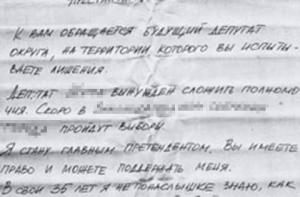 К ВАМ ОБРАЩАЕТСЯ БУДУЩИЙ ДЕПУТАТ
ОКРУГА, НА ТЕРРИТОРИИ КОТОРОГО ВЫ ИСПЫТЫ-
ВАЕТЕ ЛИШЕНИЯ.
ДЕПУТАТ ВЫНУЖДЕН СЛОЖИТЬ ПОЛНОМО
ЧИЯ. СКОРО В
ПРОЙДУТ ВЫБОРЫ.
Я СТАНУ ГЛАВНЫМ ПРЕТЕНДЕНТОМ. ВЫ ИМЕЕТЕ
ПРАВО И МОЖЕТЕ ПОДДЕРЖАТЬ МЕНЯ.
В СВОИ 35 ЛЕТ Я НЕ ПОНАСЛЫШКЕ ЗНАЮ, КАК